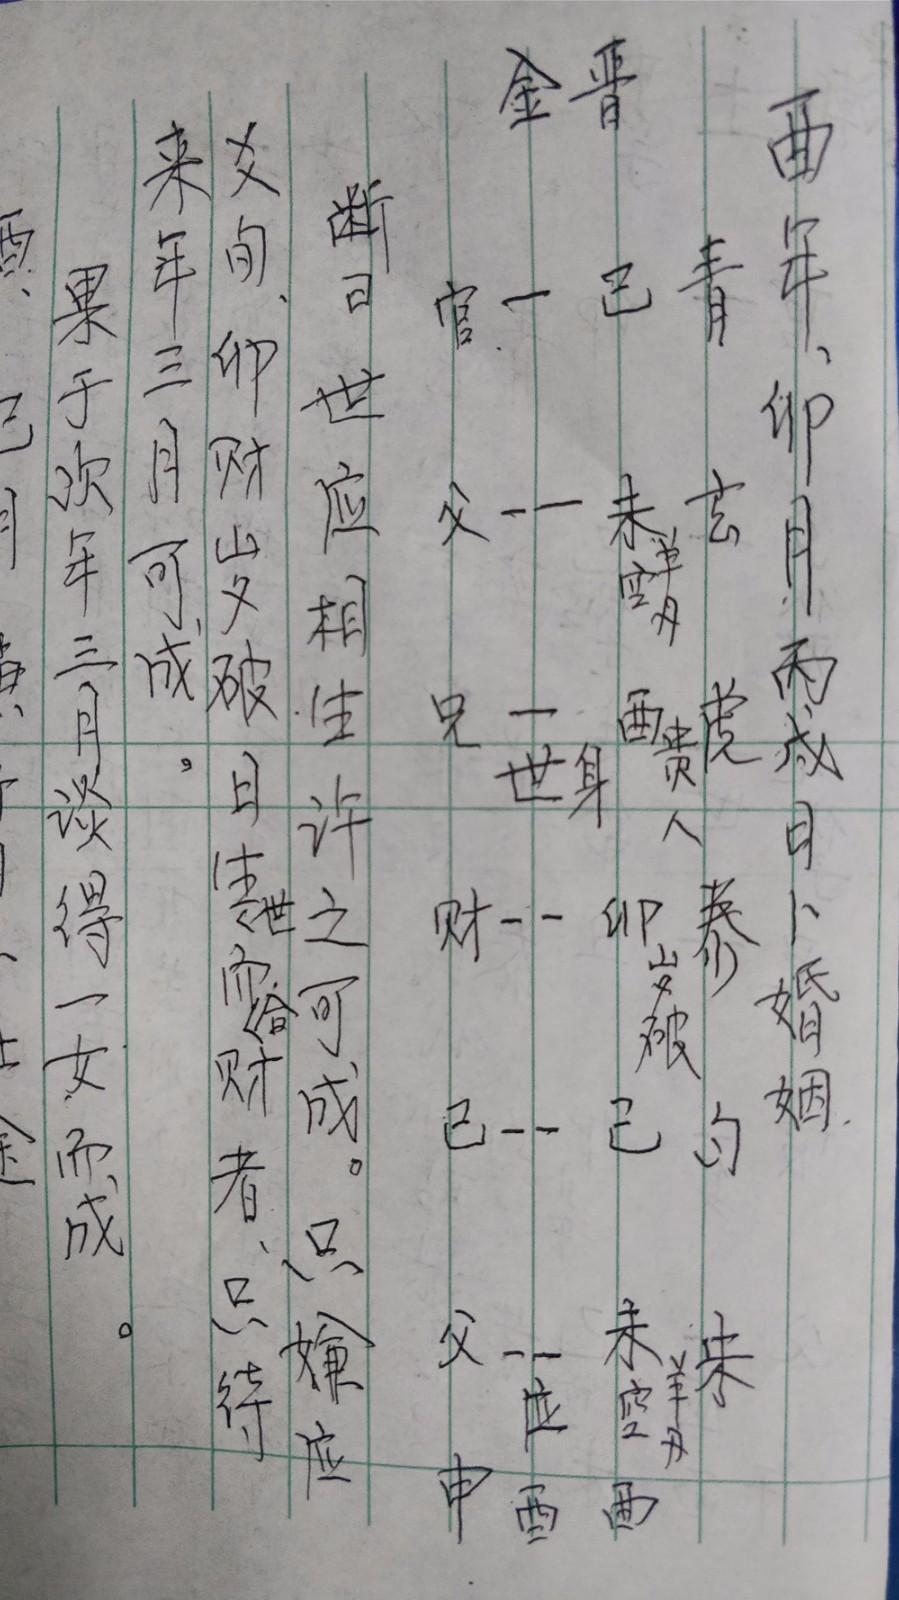 酉年、卯月丙戌日卜婚姻.
青 玄 虎 泰 勾 朱
晋 巳 未 空 羊刃 酉 贵人 身 卯 岁破 巳 未 空 羊刃 酉
金 一 -- 一 世 -- -- -- 应 酉
官 父 兄 财 已 父 申
断曰世应相生许之可成。只嫌应
爻旬、卯财岁破日生世而合财者、只待
来年三月可成。
果于次年三月谈得一女而成。